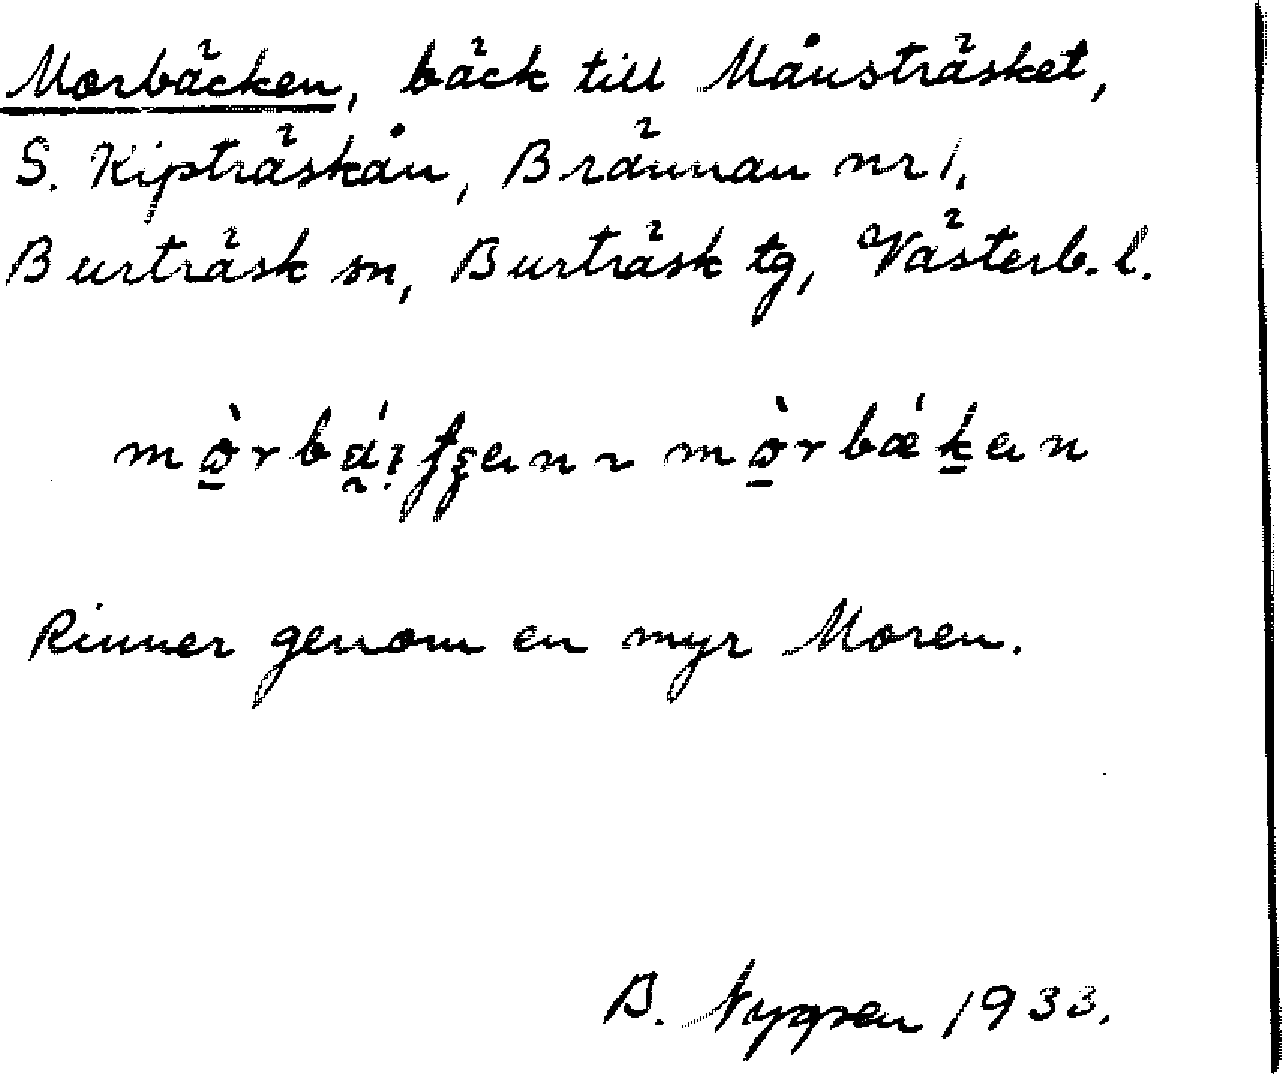 Morbäcken, bäck till Månsträsket,
S. Kipträskån, Brännan nr 1,
Burträsk sn, Burträsk tg, Västerb. l.
mò̱rbǽken
Rinner genom en myr Moren.
B. Nygren 1933.